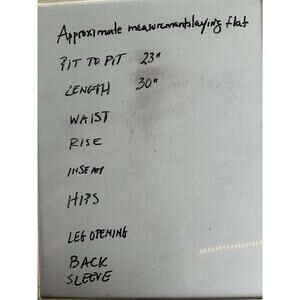 Approximate measurements laying flat
PIT TO PIT 23"
LENGTH 30"
WAIST
RISE
INSEAM
HIPS
LEG OPENING
BACK
SLEEVE